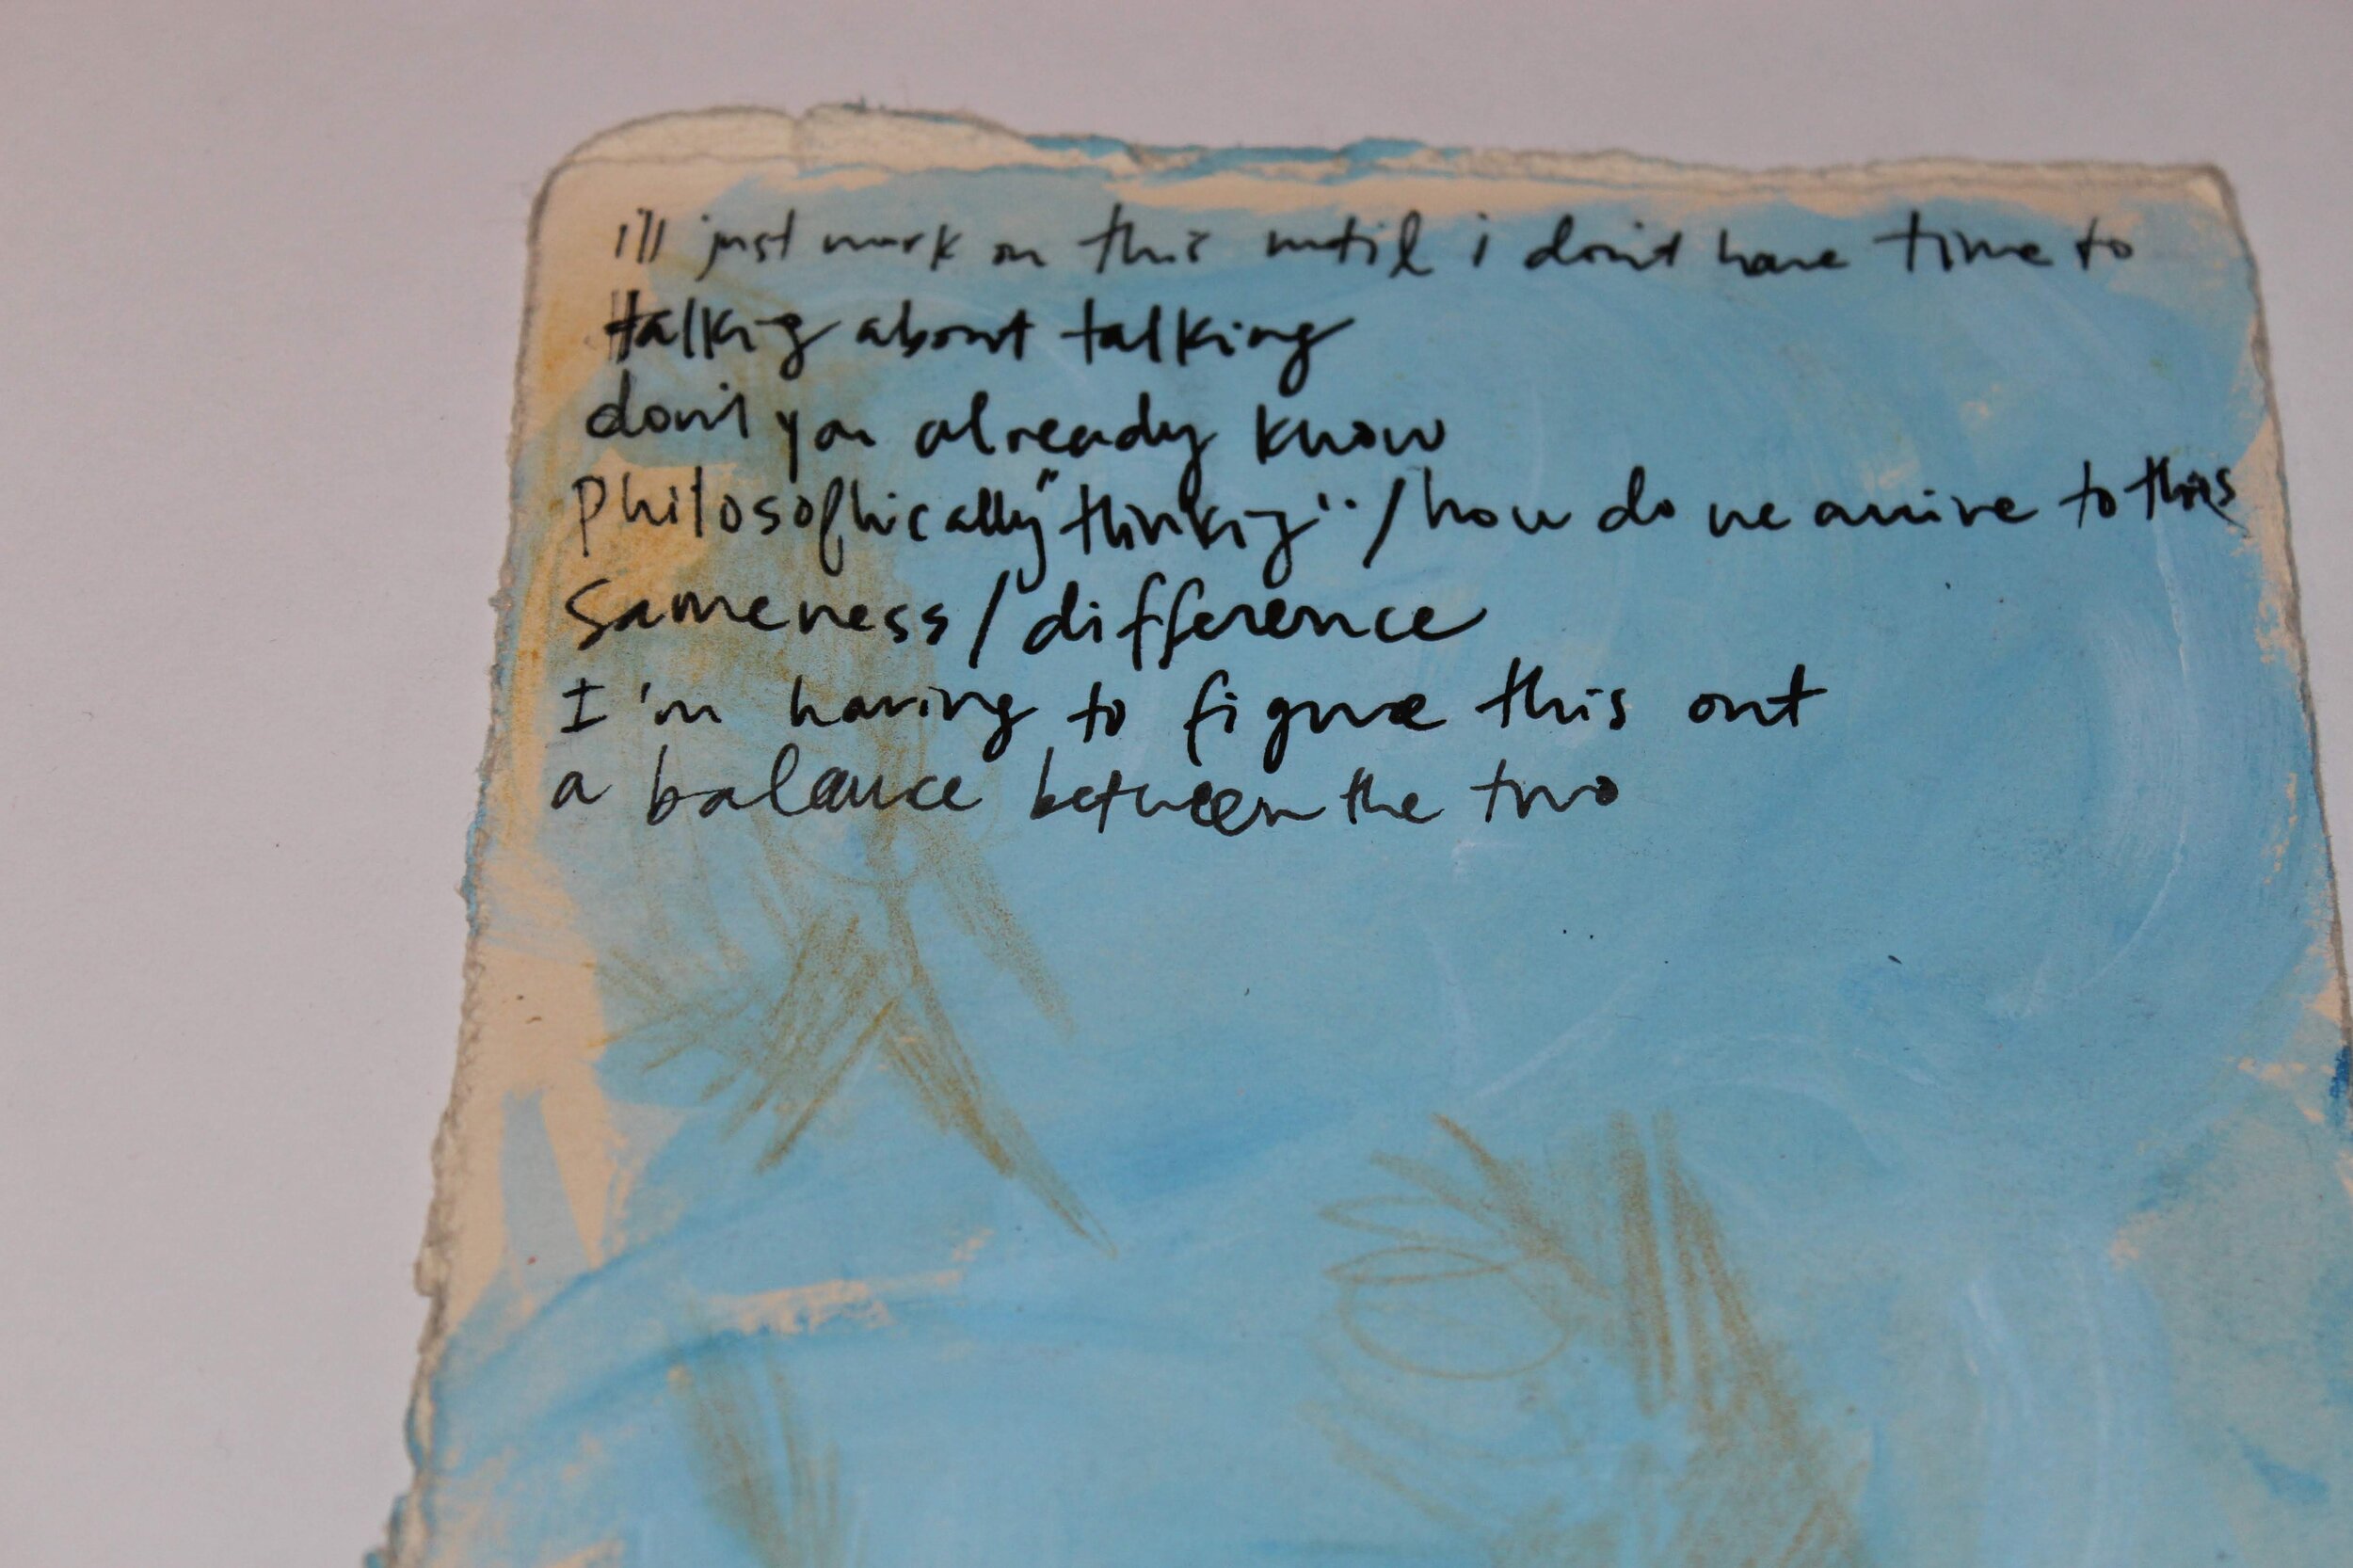 i'll just work on this until i don't have time to
talking about talking
don't you already know
philosophically "thinking" / how do we arrive to this
Sameness / difference
I'm having to figure this out
a balance between the two